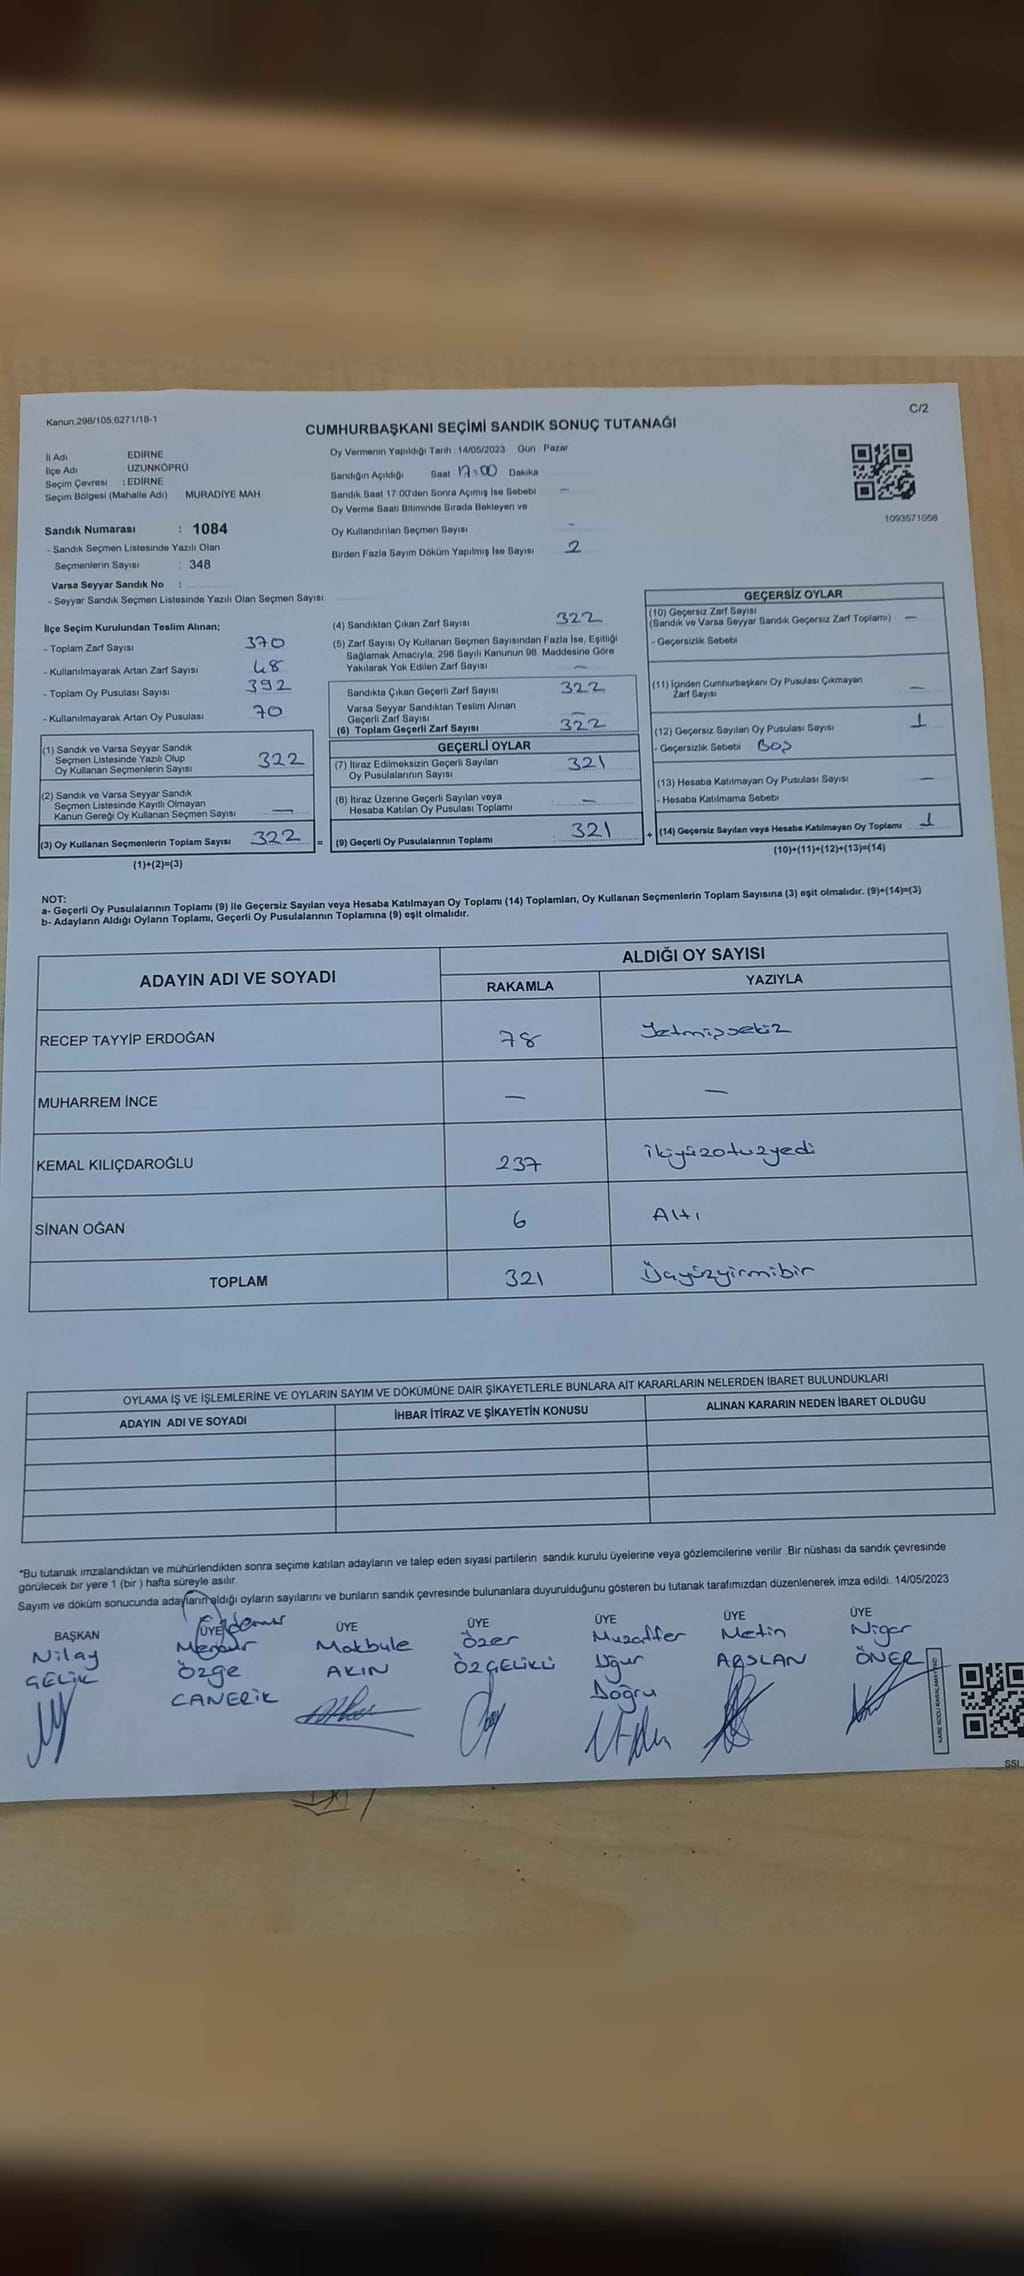 Kanun,298/105;6271/18-1
C/2
CUMHURBAŞKANI SEÇİMİ SANDIK SONUÇ TUTANAĞI
İl Adı EDİRNE
İlçe Adı UZUNKÖPRÜ
Seçim Çevresi : EDİRNE
Seçim Bölgesi (Mahalle Adı) MURADİYE MAH
Sandık Numarası : 1084
- Sandık Seçmen Listesinde Yazılı Olan
Seçmenlerin Sayısı : 348
Varsa Seyyar Sandık No :
- Seyyar Sandık Seçmen Listesinde Yazılı Olan Seçmen Sayısı:
Oy Vermenin Yapıldığı Tarih : 14/05/2023 Gün : Pazar
Sandığın Açıldığı Saat 17:00 Dakika
Sandık Saat 17:00'den Sonra Açımış İse Sebebi —
Oy Verme Saati Bitiminde Sırada Bekleyen ve
Oy Kullandırılan Seçmen Sayısı –
Birden Fazla Sayım Döküm Yapılmış İse Sayısı 2
1093571056
İlçe Seçim Kurulundan Teslim Alınan;
- Toplam Zarf Sayısı 370
- Kullanılmayarak Artan Zarf Sayısı 48
- Toplam Oy Pusulası Sayısı 392
- Kullanılmayarak Artan Oy Pusulası 70
(1) Sandık ve Varsa Seyyar Sandık
Seçmen Listesinde Yazılı Olup
Oy Kullanan Seçmenlerin Sayısı 322
(2) Sandık ve Varsa Seyyar Sandık
Seçmen Listesinde Kayıtlı Olmayan
Kanun Gereği Oy Kullanan Seçmen Sayısı —
(3) Oy Kullanan Seçmenlerin Toplam Sayısı 322 =
(1)+(2)=(3)
(4) Sandıktan Çıkan Zarf Sayısı 322
(5) Zarf Sayısı Oy Kullanan Seçmen Sayısından Fazla İse, Eşitliği
Sağlamak Amacıyla, 298 Sayılı Kanunun 98. Maddesine Göre
Yakılarak Yok Edilen Zarf Sayısı —
Sandıkta Çıkan Geçerli Zarf Sayısı 322
Varsa Seyyar Sandıktan Teslim Alınan
Geçerli Zarf Sayısı —
(6) Toplam Geçerli Zarf Sayısı 322
GEÇERLİ OYLAR
(7) İtiraz Edilmeksizin Geçerli Sayılan
Oy Pusulalarının Sayısı 321
(8) İtiraz Üzerine Geçerli Sayılan veya
Hesaba Katılan Oy Pusulası Toplamı —
(9) Geçerli Oy Pusulalarının Toplamı : 321 +
GEÇERSİZ OYLAR
(10) Geçersiz Zarf Sayısı
(Sandık ve Varsa Seyyar Sandık Geçersiz Zarf Toplamı) —
- Geçersizlik Sebebi
(11) İçinden Cumhurbaşkanı Oy Pusulası Çıkmayan
Zarf Sayısı —
(12) Geçersiz Sayılan Oy Pusulası Sayısı 1
- Geçersizlik Sebebi Boş
(13) Hesaba Katılmayan Oy Pusulası Sayısı —
- Hesaba Katılmama Sebebi
(14) Geçersiz Sayılan veya Hesaba Katılmayan Oy Toplamı 1
(10)+(11)+(12)+(13)=(14)
NOT:
a- Geçerli Oy Pusulalarının Toplamı (9) ile Geçersiz Sayılan veya Hesaba Katılmayan Oy Toplamı (14) Toplamları, Oy Kullanan Seçmenlerin Toplam Sayısına (3) eşit olmalıdır. (9)+(14)=(3)
b- Adayların Aldığı Oyların Toplamı, Geçerli Oy Pusulalarının Toplamına (9) eşit olmalıdır.
ADAYIN ADI VE SOYADI ALDIĞI OY SAYISI
RAKAMLA YAZIYLA
RECEP TAYYİP ERDOĞAN 78 Yetmişsekiz
MUHARREM İNCE — —
KEMAL KILIÇDAROĞLU 237 ikiyüzotuzyedi
SİNAN OĞAN 6 Altı
TOPLAM 321 Üçyüzyirmibir
OYLAMA İŞ VE İŞLEMLERİNE VE OYLARIN SAYIM VE DÖKÜMÜNE DAİR ŞİKAYETLERLE BUNLARA AİT KARARLARIN NELERDEN İBARET BULUNDUKLARI
ADAYIN ADI VE SOYADI İHBAR İTİRAZ VE ŞİKAYETİN KONUSU ALINAN KARARIN NEDEN İBARET OLDUĞU
*Bu tutanak imzalandıktan ve mühürlendikten sonra seçime katılan adayların ve talep eden siyasi partilerin sandık kurulu üyelerine veya gözlemcilerine verilir. Bir nüshası da sandık çevresinde
görülecek bir yere 1 (bir ) hafta süreyle asılır.
Sayım ve döküm sonucunda adayların aldığı oyların sayılarını ve bunların sandık çevresinde bulunanlara duyurulduğunu gösteren bu tutanak tarafımızdan düzenlenerek imza edildi. 14/05/2023
BAŞKAN ÜYE ÜYE ÜYE ÜYE ÜYE ÜYE
Nilay Makbule Özer Muzaffer Metin Niger
ÇELİK Özge AKIN ÖZÇELİKLİ Uğur ARSLAN ÖNER
CANERİK Doğru
KARE KODU KARALAMAYINIZ
SSI